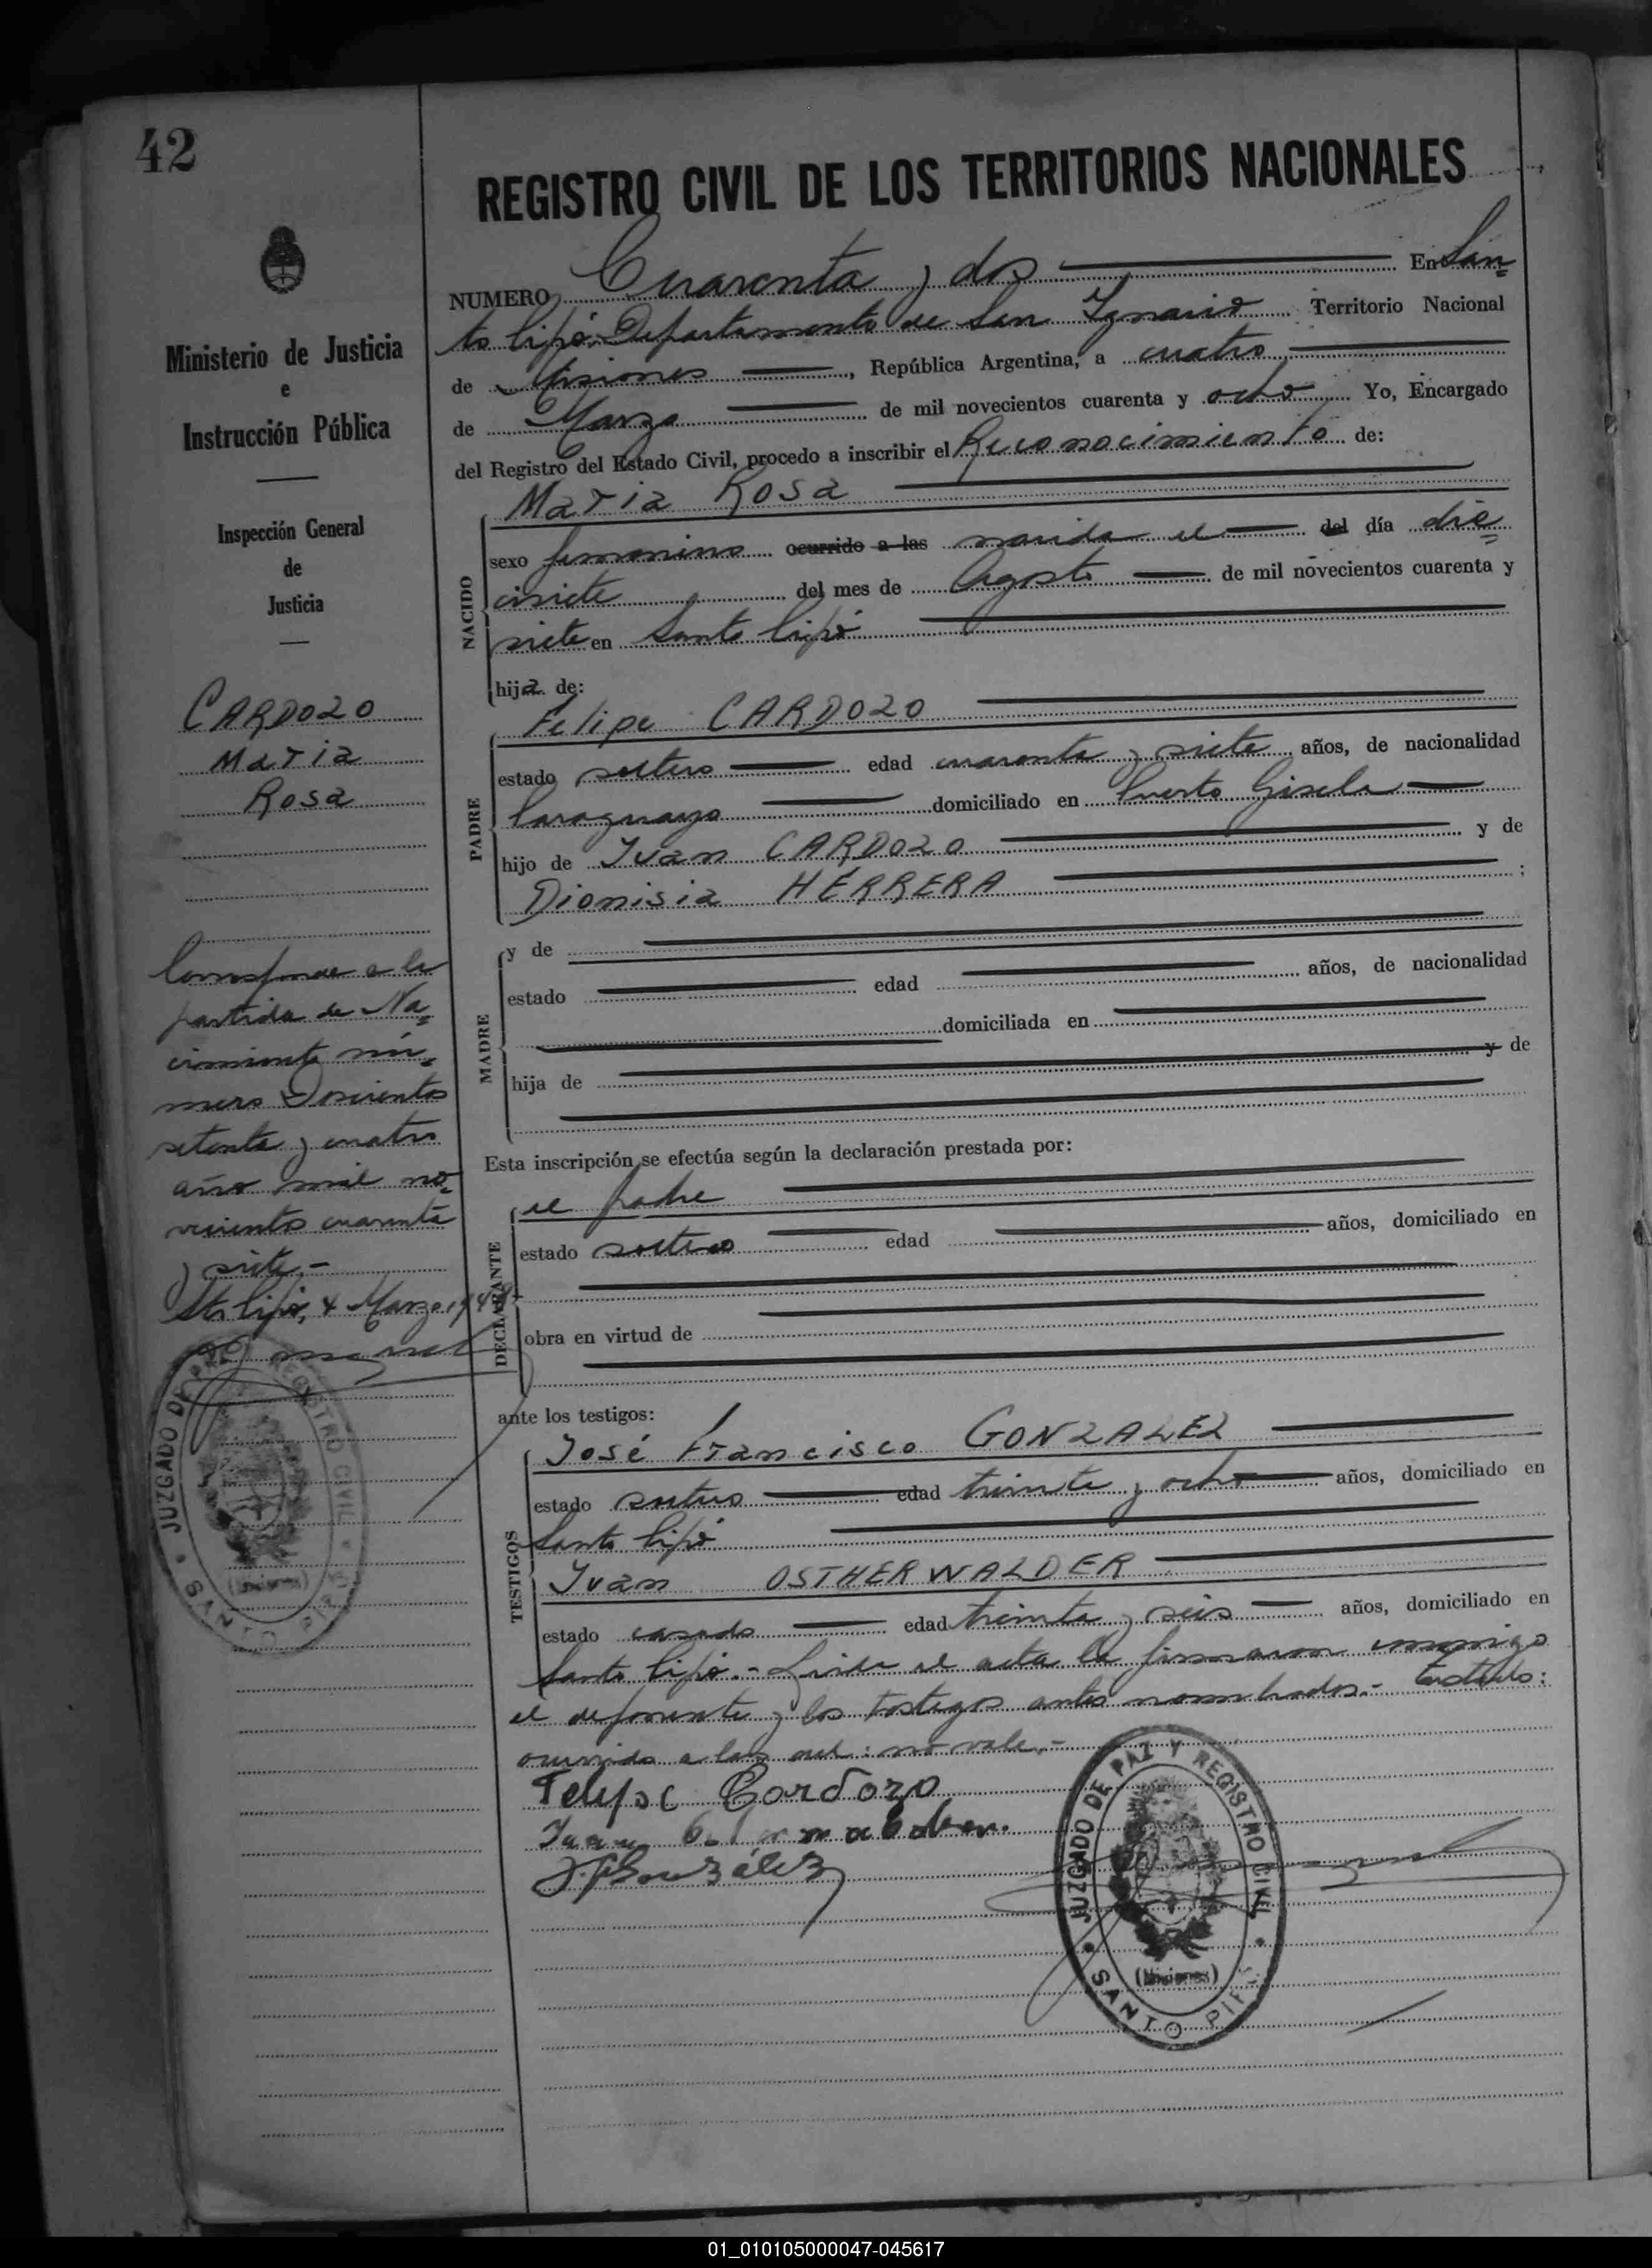 42
REGISTRO CIVIL DE LOS TERRITORIOS NACIONALES
NUMERO Cuarenta y dos En San=
to Pipó Departamento de San Ignacio Territorio Nacional
de Misiones, República Argentina, a cuatro
de Marzo de mil novecientos cuarenta y ocho Yo, Encargado
del Registro del Estado Civil, procedo a inscribir el Reconocimiento de:
NACIDO
Maria Rosa
sexo femenino ocurrido a las nacida el del día die=
cisiete del mes de Agosto de mil novecientos cuarenta y
siete en Santo Pipó
hija de:
PADRE
Felipe CARDOZO
estado soltero edad cuarenta y siete años, de nacionalidad
Paraguayo domiciliado en Puerto Gisela
hijo de Juan CARDOZO y de
Dionisia HERRERA ;
MADRE
y de
estado edad años, de nacionalidad
domiciliada en
hija de y de
Esta inscripción se efectúa según la declaración prestada por:
DECLARANTE
el padre
estado soltero edad años, domiciliado en
obra en virtud de
ante los testigos:
TESTIGOS
José Francisco GONZALEZ
estado soltero edad treinta y ocho años, domiciliado en
Santo Pipó
Juan OSTHERWALDER
estado casado edad treinta y seis años, domiciliado en
Santo Pipó.- Leída el acta la firmaron conmigo
el deponente y los testigos antes nombrados.- Testado:
ocurrido a las del: no vale.-
Felipe Cardozo
Juan
JFGonzález
JUZGADO DE PAZ Y REGISTRO CIVIL
(Misiones)
SANTO PIPÓ
Ministerio de Justicia
e
Instrucción Pública
Inspección General
de
Justicia
CARDOZO
Maria
Rosa
Corresponde a la
partida de Na=
cimiento nú=
mero Doscientos
setenta y cuatro
año mil no=
vecientos cuarenta
y siete.-
Sto Pipó, 4 Marzo 1948
JUZGADO DE PAZ Y REGISTRO CIVIL
(Misiones)
SANTO PIPÓ
01_010105000047-045617